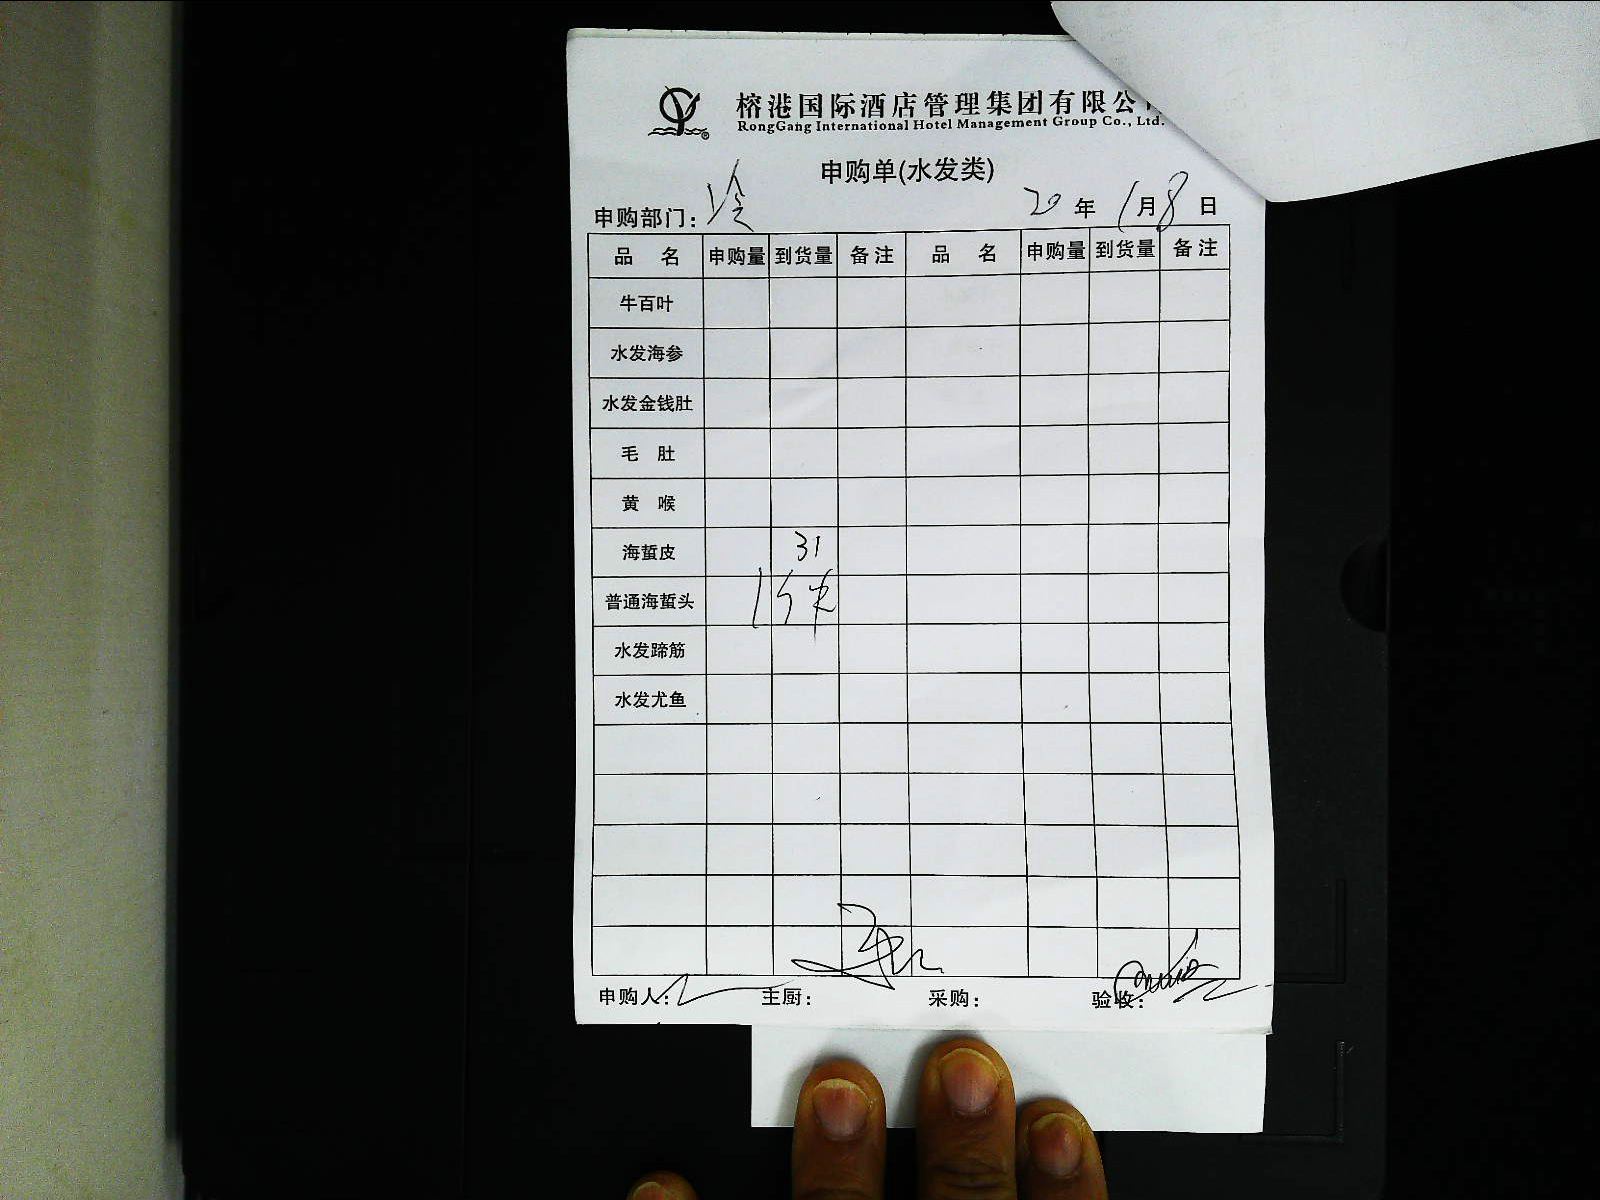 榕港国际酒店管理集团有限公
RongGang International Hotel Management Group Co., Ltd.
申购单(水发类)
申购部门: 冷 20 年 1 月 8 日
品 名 申购量 到货量 备注 品 名 申购量 到货量 备注
牛百叶
水发海参
水发金钱肚
毛 肚
黄 喉
海蜇皮 31
普通海蜇头
水发蹄筋
水发尤鱼
申购人: 主厨: 采购: 验收: